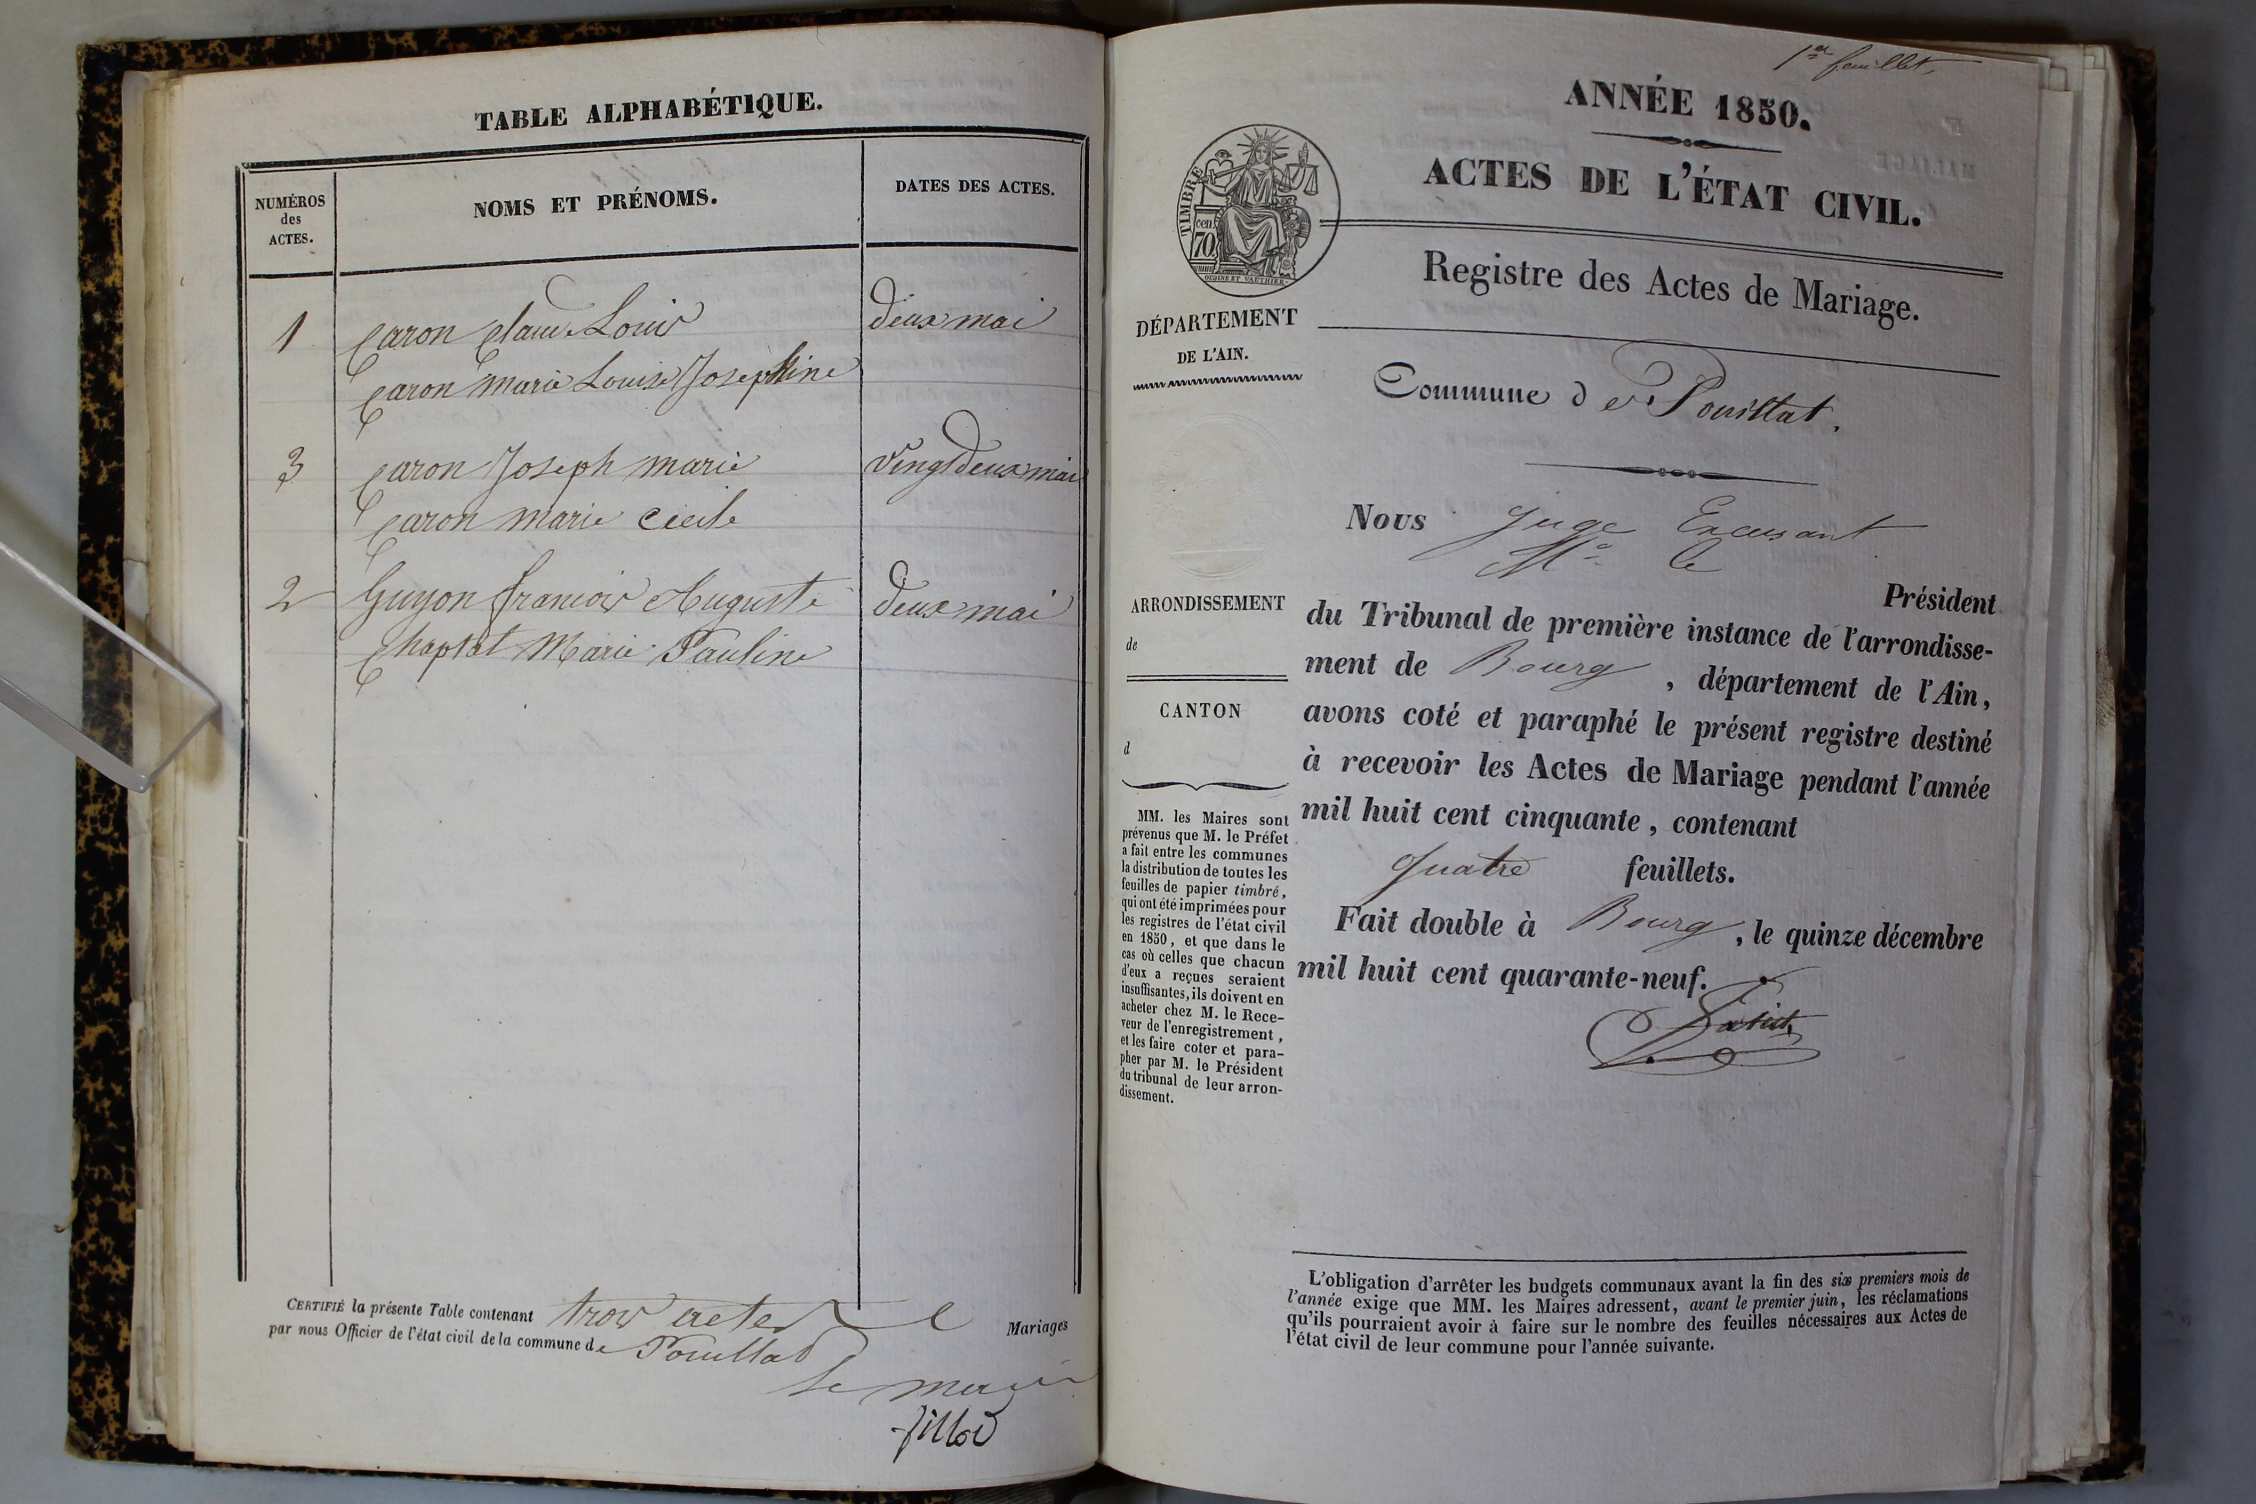 TABLE ALPHABÉTIQUE.
NUMÉROS
des
ACTES.
NOMS ET PRÉNOMS.
DATES DES ACTES.
1 Caron Claude Louis deux mai
Caron Marie Louise Josephine
3 Caron Joseph Marie vingt deux mai
Caron Marie Cecile
2 Guyon francois Auguste deux mai
Chaptal Marie Pauline
CERTIFIÉ la présente Table contenant trois actes de Mariages
par nous Officier de l'état civil de la commune de Pouillat
le maire
fillod
1er feuillet.
ANNÉE 1850.
ACTES DE L'ÉTAT CIVIL.
TIMBRE
cen.
70
OUDINE ET VAUTHIER
Registre des Actes de Mariage.
DÉPARTEMENT
DE L'AIN.
Commune de Pouillat.
Nous juge
Mr le
Président
du Tribunal de première instance de l'arrondisse-
ment de Bourg, département de l'Ain,
avons coté et paraphé le présent registre destiné
à recevoir les Actes de Mariage pendant l'année
mil huit cent cinquante, contenant
quatre feuillets.
Fait double à Bourg, le quinze décembre
mil huit cent quarante-neuf.
ARRONDISSEMENT
de
CANTON
d
MM. les Maires sont
prévenus que M. le Préfet
a fait entre les communes
la distribution de toutes les
feuilles de papier timbré,
qui ont été imprimées pour
les registres de l'état civil
en 1850, et que dans le
cas où celles que chacun
d'eux a reçues seraient
insuffisantes, ils doivent en
acheter chez M. le Rece-
veur de l'enregistrement,
et les faire coter et para-
pher par M. le Président
du tribunal de leur arron-
dissement.
L'obligation d'arrêter les budgets communaux avant la fin des six premiers mois de
l'année exige que MM. les Maires adressent, avant le premier juin, les réclamations
qu'ils pourraient avoir à faire sur le nombre des feuilles nécessaires aux Actes de
l'état civil de leur commune pour l'année suivante.